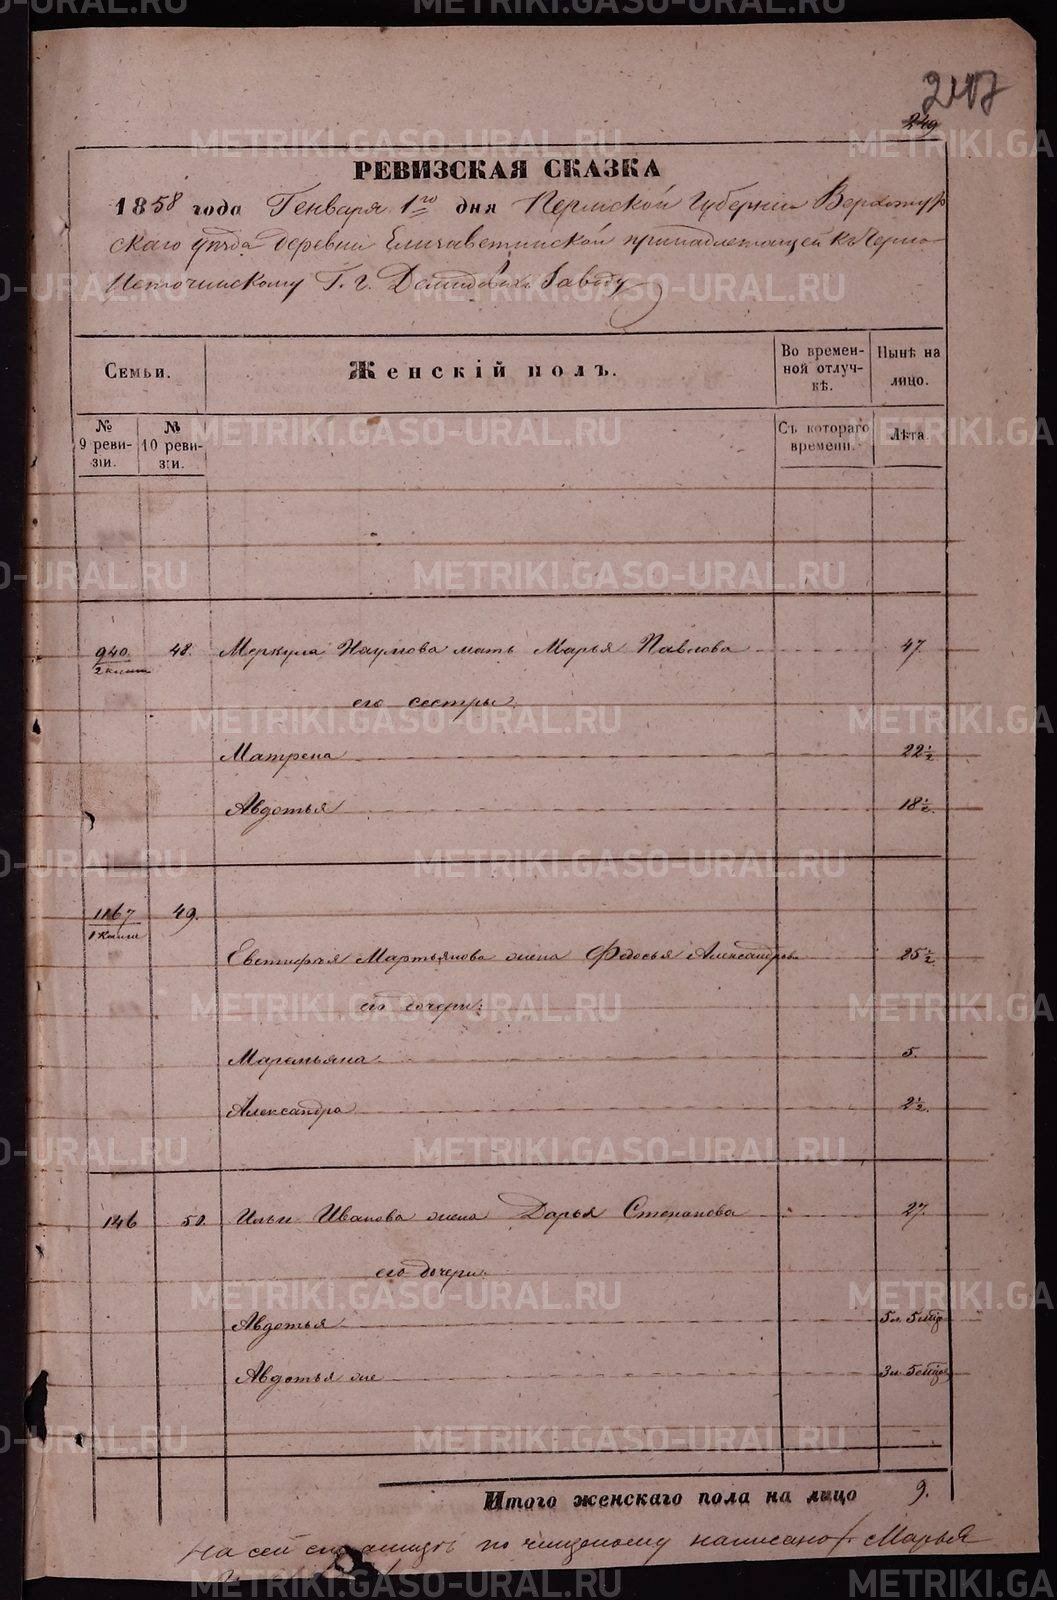 247
249
РЕВИЗСКАЯ СКАЗКА
1858 года Генваря 1го дня Пермской Губерніи Верхотур
скаго уѣзда деревни Елизаветинской принадлежащей къ Черно
источинскому Г. г. Демидовыхъ Заводу
Семьи.
Женскій полъ.
Во времен-
ной отлуч-
кѣ.
Нынѣ на
лицо.
№
9 реви-
зіи.
№
10 реви-
зіи.
Съ котораго
времени.
Лѣта
940. 48. Меркула Наумова мать Марья Павлова 47.
2 книги
его сестры
Матрена 22½
Авдотья 18½.
1167 49.
1 книги
Евстифея Мартьянова жена Федосья Александрова 25½
его дочери:
Маремьяна 5.
Александра 2½.
146 50. Ильи Иванова жена Дарья Степанова 27.
его дочери
Авдотья 5л. 5мѣс
Авдотья же 3л. 5мѣся
Итого женскаго пола на лицо 9.
на сей страницѣ по чищеному написано Марья
METRIKI.GASO-URAL.RU